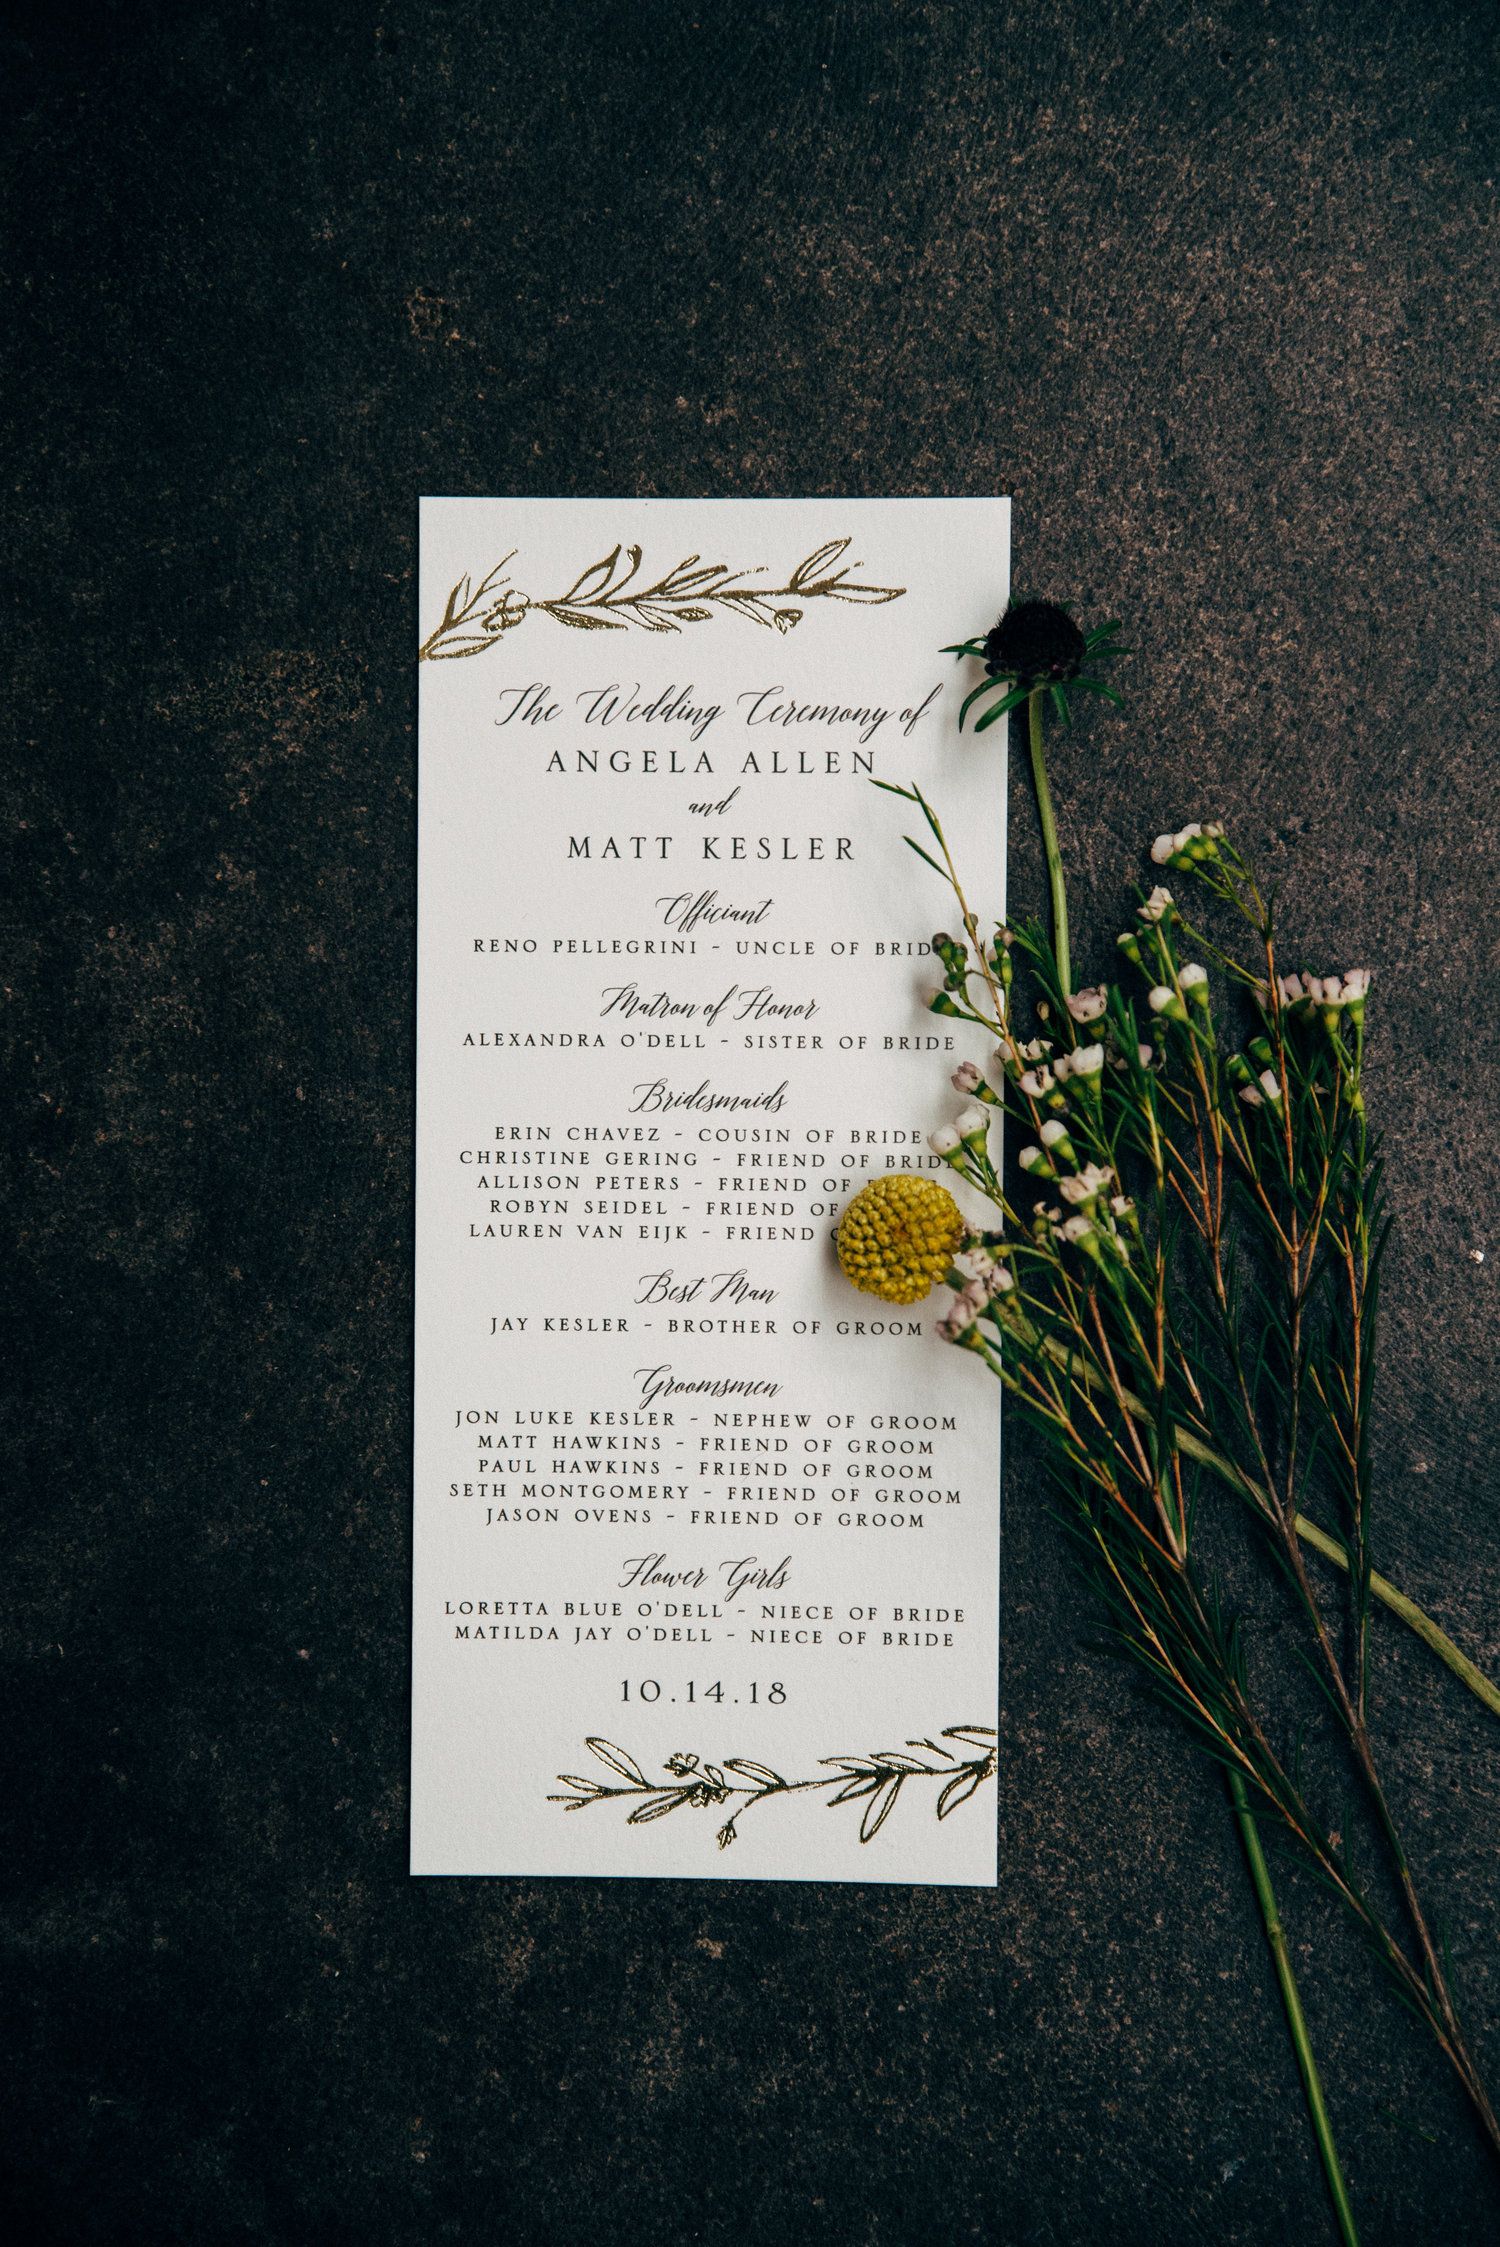 The Wedding Ceremony of
ANGELA ALLEN
and
MATT KESLER
Officiant
RENO PELLEGRINI - UNCLE OF BRIDE
Matron of Honor
ALEXANDRA O'DELL - SISTER OF BRIDE
Bridesmaids
ERIN CHAVEZ - COUSIN OF BRIDE
CHRISTINE GERING - FRIEND OF BRIDE
ALLISON PETERS - FRIEND OF
ROBYN SEIDEL - FRIEND OF
LAUREN VAN EIJK - FRIEND
Best Man
JAY KESLER - BROTHER OF GROOM
Groomsmen
JON LUKE KESLER - NEPHEW OF GROOM
MATT HAWKINS - FRIEND OF GROOM
PAUL HAWKINS - FRIEND OF GROOM
SETH MONTGOMERY - FRIEND OF GROOM
JASON OVENS - FRIEND OF GROOM
Flower Girls
LORETTA BLUE O'DELL - NIECE OF BRIDE
MATILDA JAY O'DELL - NIECE OF BRIDE
10.14.18